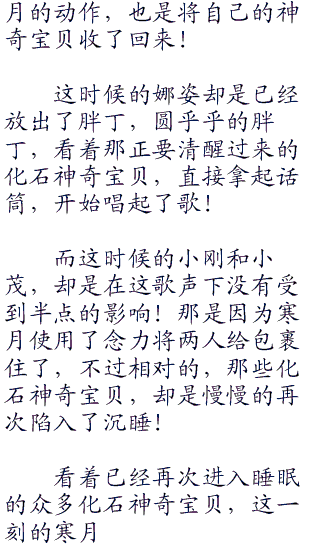 月的动作，也是将自己的神
奇宝贝收了回来！
这时候的娜姿却是已经
放出了胖丁，圆乎乎的胖
丁，看着那正要清醒过来的
化石神奇宝贝，直接拿起话
筒，开始唱起了歌！
而这时候的小刚和小
茂，却是在这歌声下没有受
到半点的影响！那是因为寒
月使用了念力将两人给包裹
住了，不过相对的，那些化
石神奇宝贝，却是慢慢的再
次陷入了沉睡！
看着已经再次进入睡眠
的众多化石神奇宝贝，这一
刻的寒月